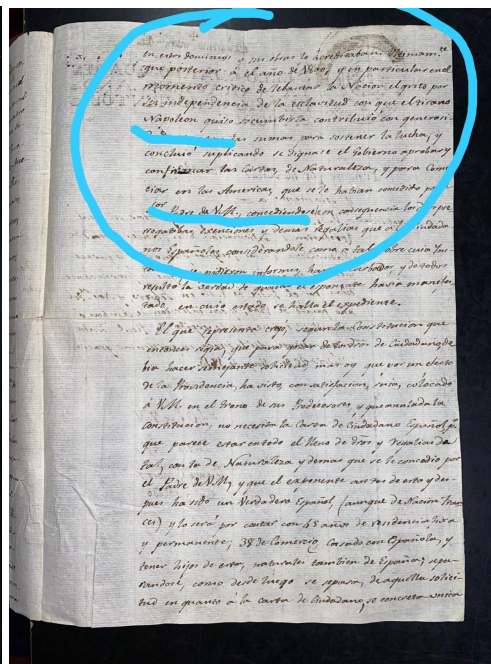 en estos dominios y sus obras lo acreditaban. Ultimam.te
que posterior á el año de 1800, y en particular en el
momento critico de lebantar la Nacion el grito por
su independencia de la esclavitud con que el tirano
Napoleon quiso sucumbirla contribuió con generosi-
sumas para sostener la lucha, y
concluió suplicando se dignase el Gobierno aprobar y
confirmar las Cartas de Naturaleza, y para Comer-
ciar en las Americas, que se le habian concedido por
Padre de V.M., concediendosele en consequencia las
exenciones y demas regalias que á los ciudada-
nos Españoles, considerandole como á tal, sobre cuia Ins-
se pidieron informes, y de todos
resultó la verdad de quanto el exponente havia manifes-
tado, en cuio estado se halla el expediente.
El que representa creyó, segun la Constitucion que
entonces regia, que para gozar de los dros. de Ciudadano, de-
bia hacer semejante solicitud mas oy que por un efecto
de la Providencia, ha visto con satisfaccion, suia, colocado
á V.M. en el trono de sus Predecesores, y que anulada la
Constitucion, no necesita la Carta de Ciudadano Español p.r
que parece estar en todo el lleno de dros y regalias de
tal, con la de Naturaleza y demas que se le concedio por
el Padre de V.M., y que el exponente antes de esto y des-
pues ha sido un Verdadero Español, (aunque de Nacion Fran-
ces) y lo será por contar con 45 años de residencia fixa
y permanente, 38 de Comercio, Casado con Española, y
tener hijos de esta, naturales tambien de España; sepa-
randose, como desde luego se separa, de aquella solici-
tud en quanto á la carta de Ciudadano, se concreta unica